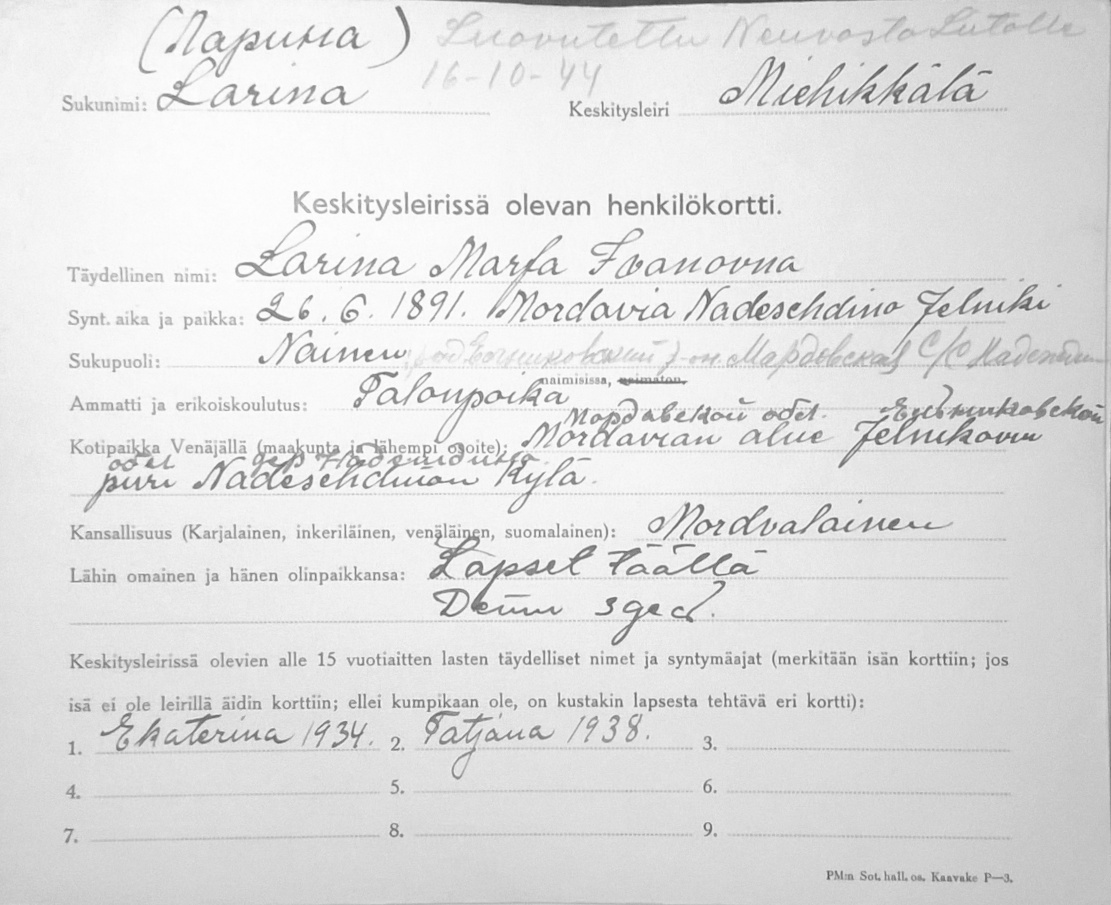 (Ларина) Luovutettu Neuvostoliitolle
16-10-44
Sukunimi: Larina Keskitysleiri Miehikkälä
Keskitysleirissä olevan henkilökortti.
Täydellinen nimi: Larina Marfa Ivanovna
Synt. aika ja paikka: 26. 6. 1891. Mordavia Nadeschdino Jelniki
Sukupuoli: Nainen
naimisissa, naimaton.
Ammatti ja erikoiskoulutus: Talonpoika
Kotipaikka Venäjällä (maakunta ja lähempi osoite): Mordavian alue Jelnikovin
piiri Nadeschdinon Kylä.
Kansallisuus (Karjalainen, inkeriläinen, venäläinen, suomalainen): Mordvalainen
Lähin omainen ja hänen olinpaikkansa: Lapset täällä
Дети здесь.
Keskitysleirissä olevien alle 15 vuotiaitten lasten täydelliset nimet ja syntymäajat (merkitään isän korttiin; jos
isä ei ole leirillä äidin korttiin; ellei kumpikaan ole, on kustakin lapsesta tehtävä eri kortti):
1. Ekaterina 1934. 2. Tatjana 1938. 3.
4. 5. 6.
7. 8. 9.
PM:n Sot. hall. os. Kaavake P—3.